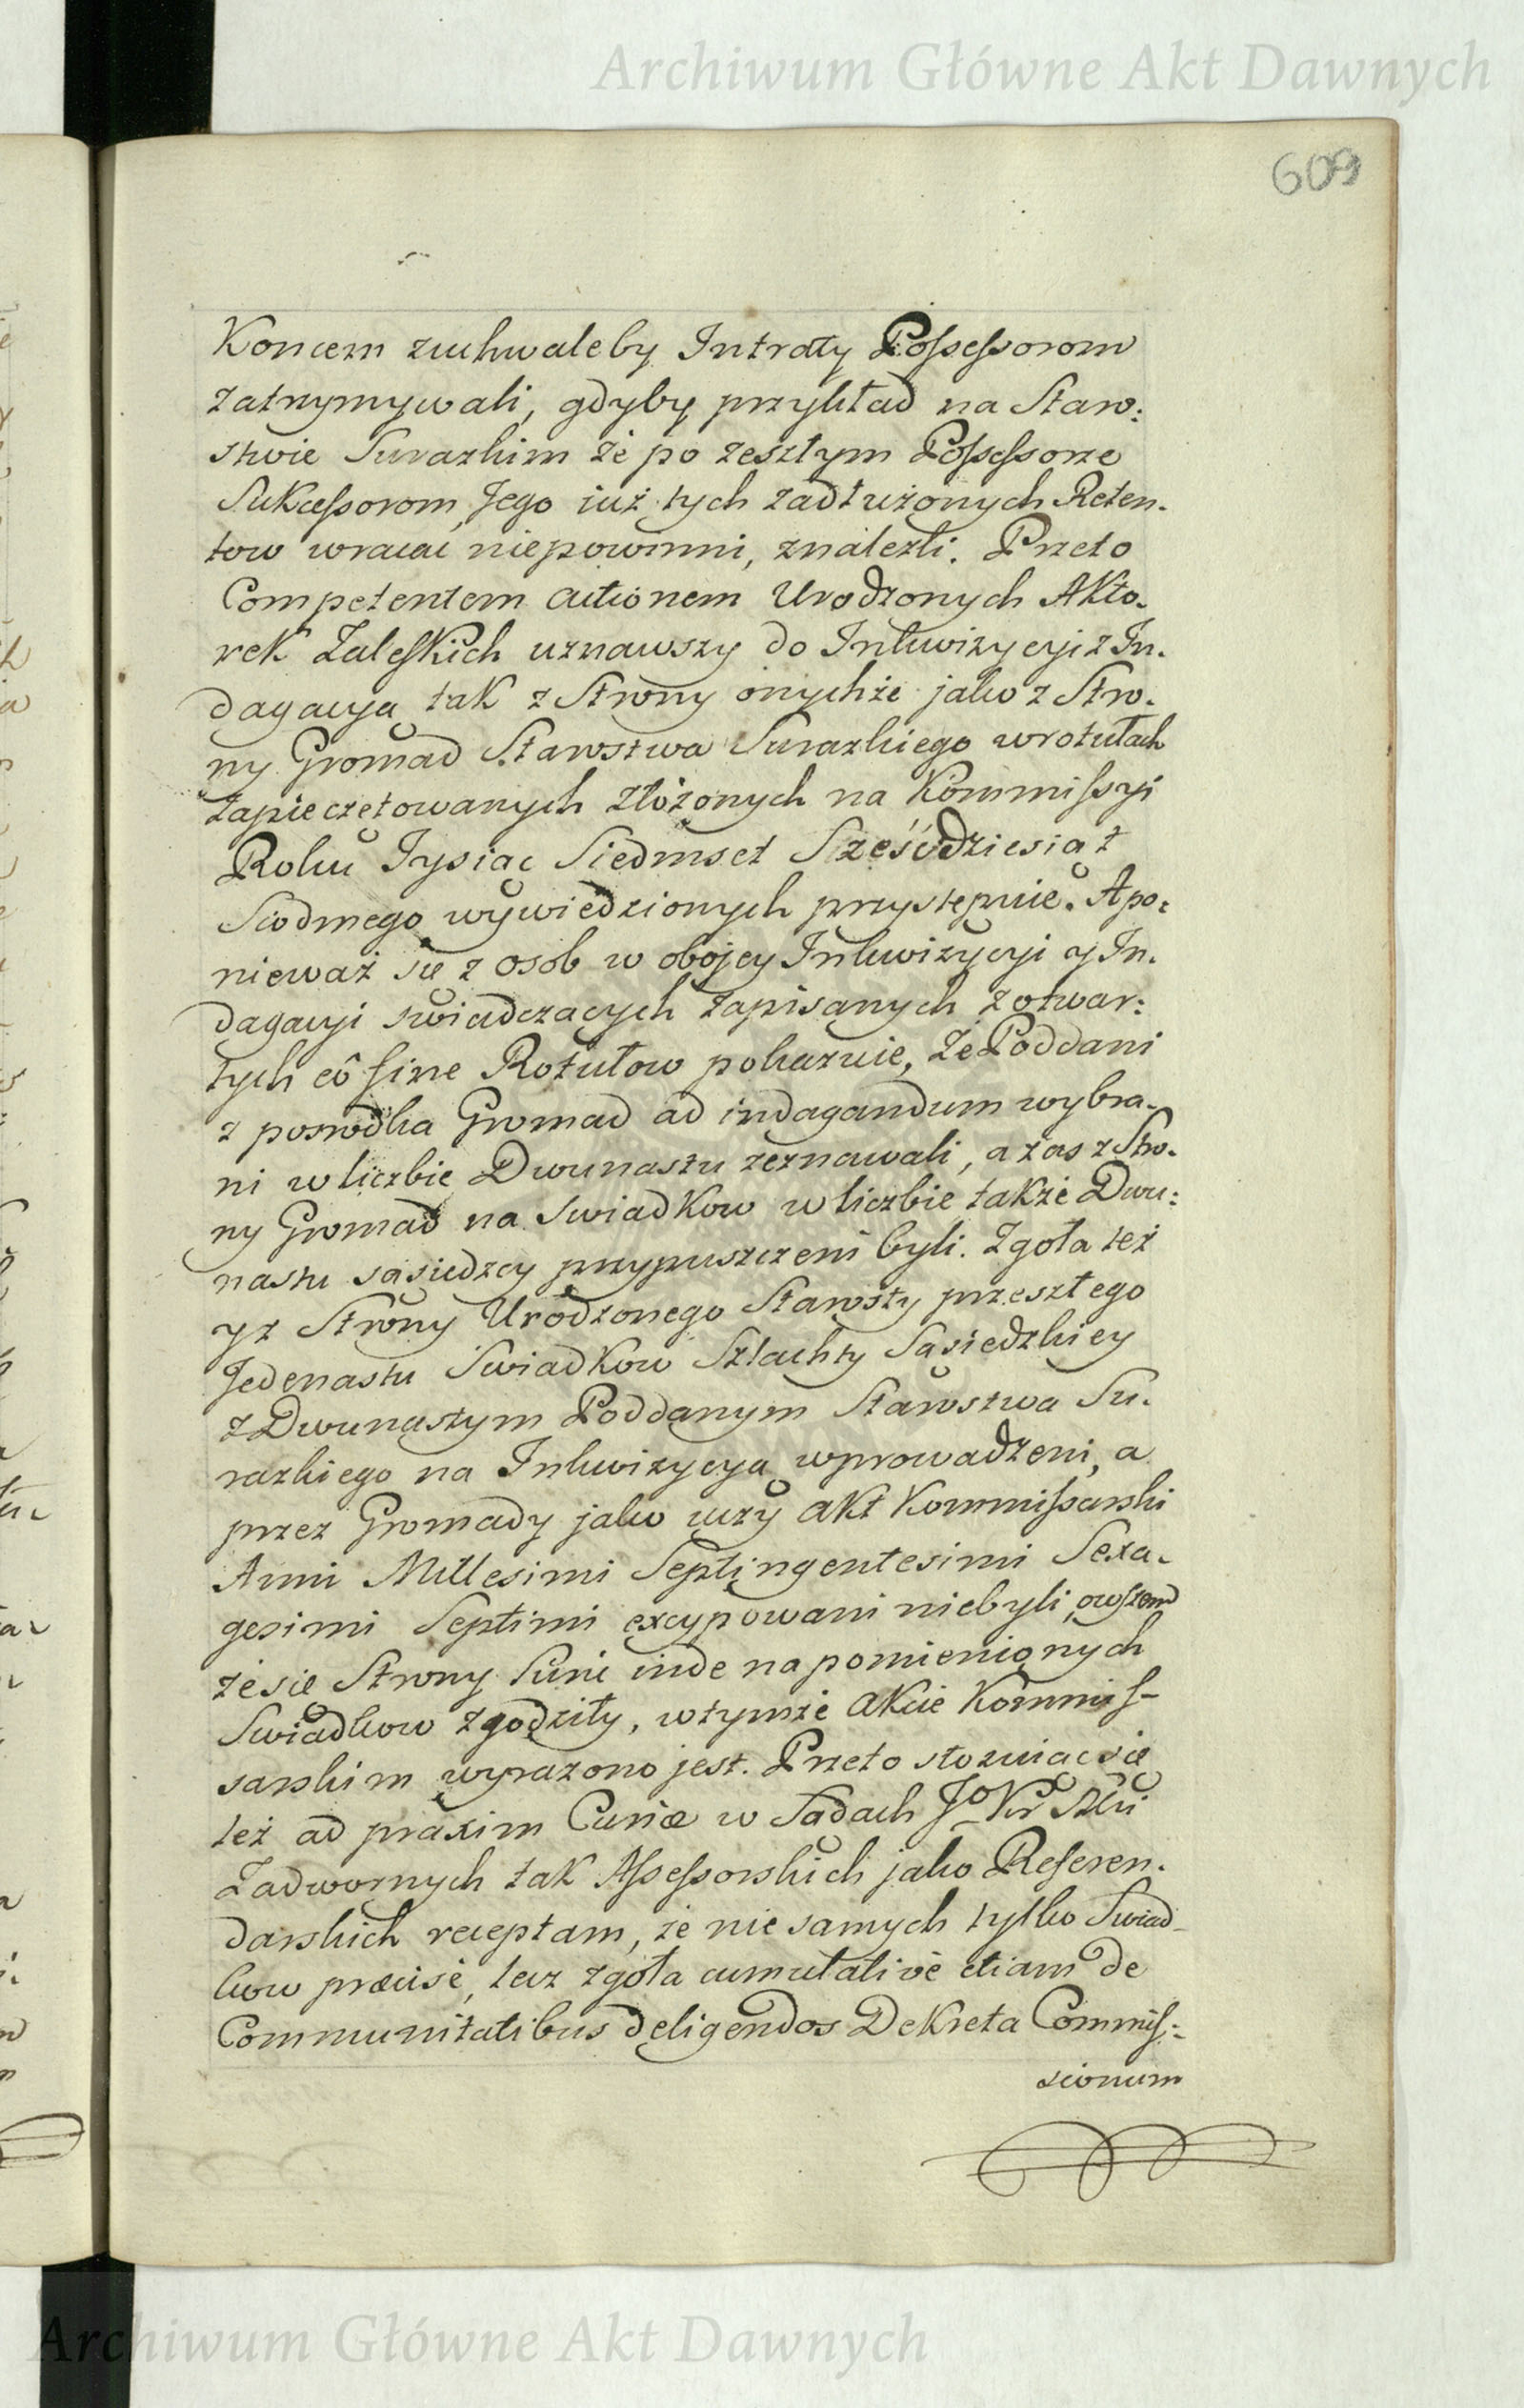 Archiwum Główne Akt Dawnych
609
Koncem zuchwaleby Intraty Possessorom
zatrzymywali, gdyby przykład na Staro:
stwie Surazkim że po zeszłym Possessorze
Sukcessorom Jego iuż tych zadłużonych Reten-
tow wracać niepowinni, znalezli. Przeto
Competentem actionem Urodzonych Akto-
rek Zaleskich uznawszy do Inkwizycyi z In-
dagacyą tak z Strony onychże jako z Stro-
ny Gromad Starostwa Surazkiego w rotułach
zapieczętowanych złożonych na Kommissyi
Roku Tysiąc Siedmset Sześćdziesiąt
Siodmego wywiedzionych przystępuie. A po:
nieważ się z osob w obojey Inkwizycyi y In-
dagacyi swiadczących zapisanych z otwar:
tych eô fine Rotułow pokazuie, że Poddani
z posrodka Gromad ad indagandum wybra-
ni w liczbie Dwunastu zeznawali, a zas z Stro-
ny Gromad na Swiadkow w liczbie także Dwu:
nastu sąsiedzcy przypuszczeni byli. Zgoła też
y z Strony Urodzonego Starosty przeszłego
Jedenastu Swiadkow Szlachty Sąsiedzkiey
z Dwunastym Poddanym Starostwa Su-
razkiego na Inkwizycyą wprowadzeni, a
przez Gromady jako uczy Akt Kommissarski
Anni Millesimi Septingentesimi Sexa-
gesimi Septimi excypowani niebyli, owszem
że się Strony hinc inde na pomienionych
Swiadkow zgodziły, w tymże Akcie Kommis-
sarskim wyrażono jest. Przeto stosuiąc się
też ad praxim Curiæ w Sądach Jº Kr Mci
Zadwornych tak Assessorskich jako Referen-
darskich receptam, że nie samych tylko Swiad-
kow præcisè, lecz zgoła cumulativè etiam de
Communitatibus deligendos Dekreta Commis:
sionum
Archiwum Główne Akt Dawnych